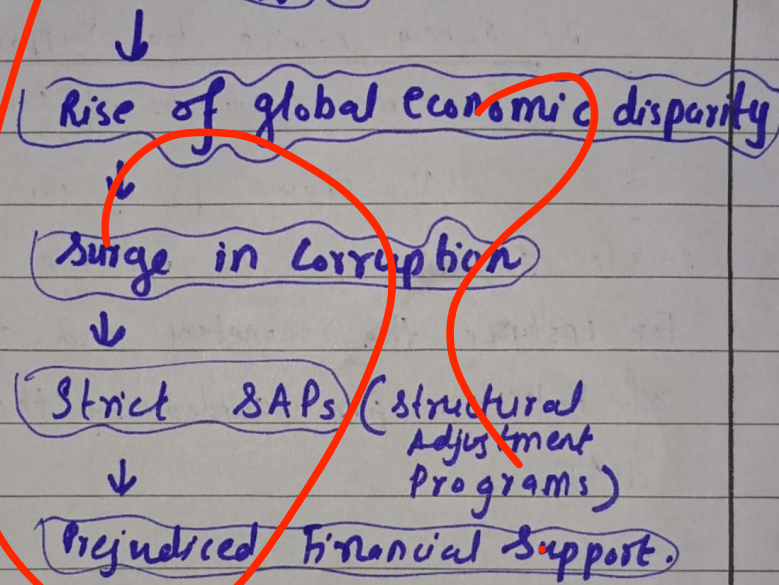 ↓
Rise of global economic disparity
↓
Surge in Corruption
↓
Strict SAPs (Structural
Adjustment
Programs)
↓
Prejudiced Financial Support.